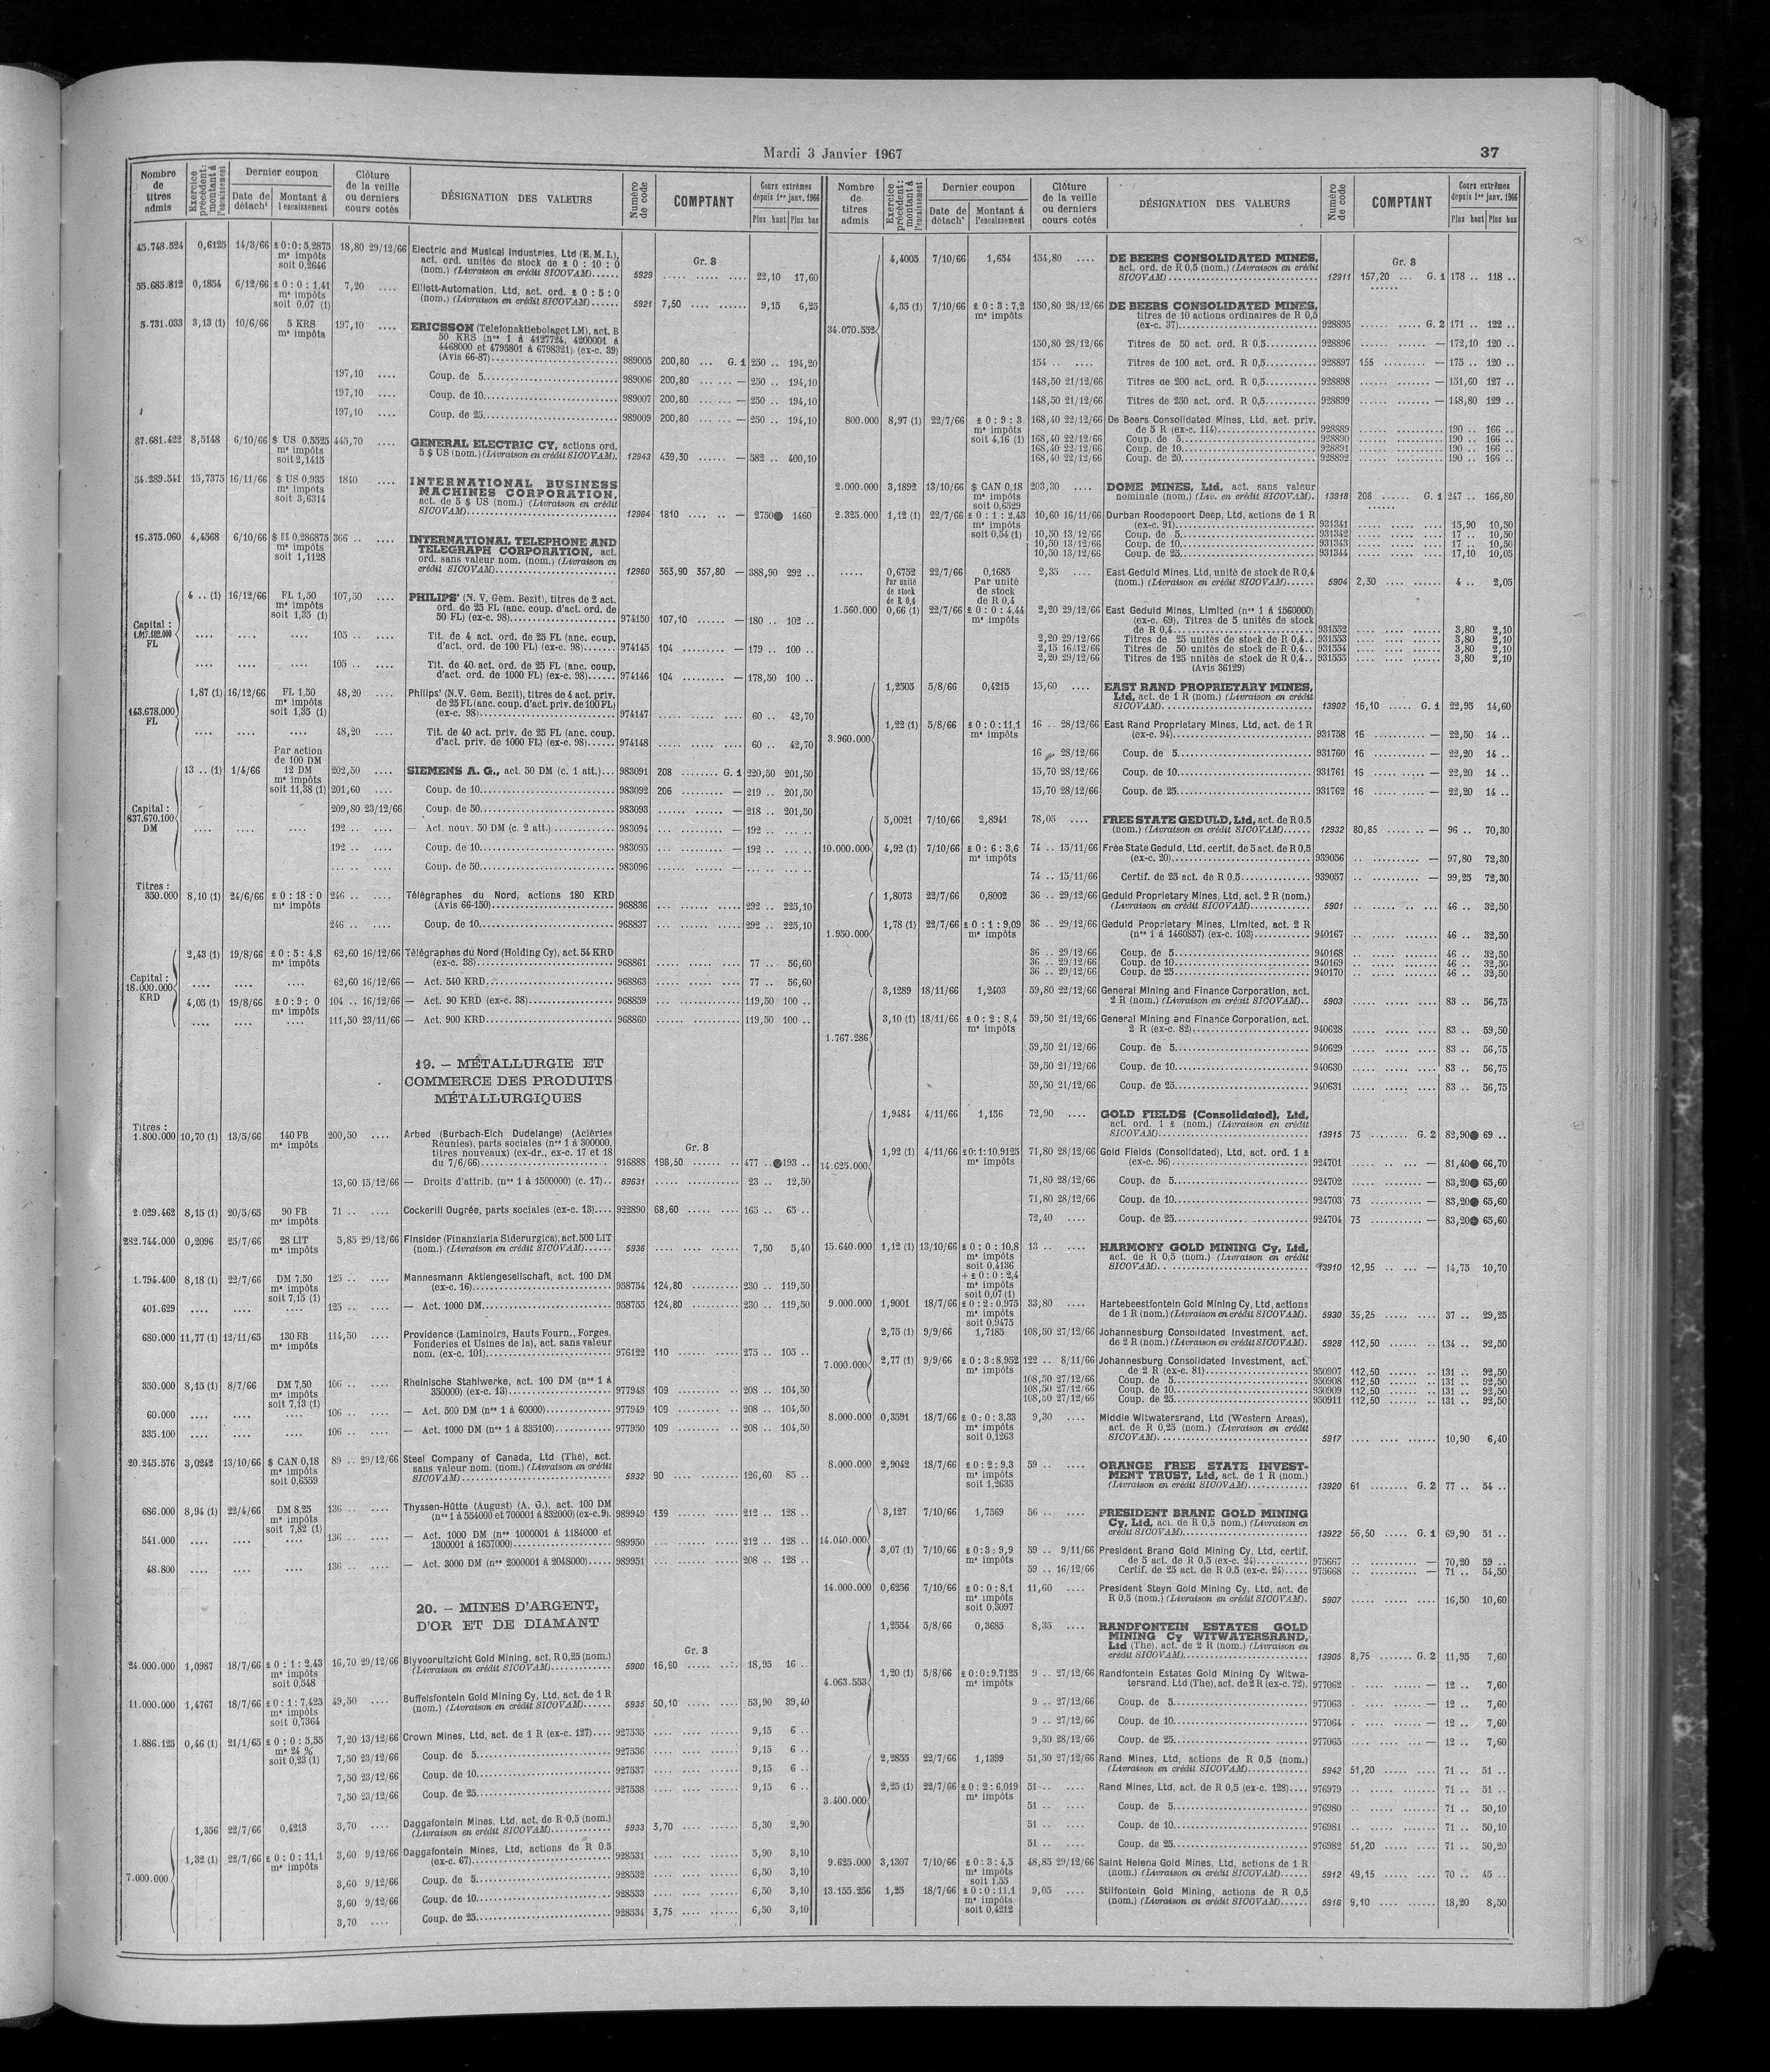 Mardi 3 Janvier 1967
37
Nombre de titres admis | Exercice précédent: montant à l'encaissement | Dernier coupon | Date de détach' | Montant à l'encaissement | Clôture de la veille ou derniers cours cotés | DÉSIGNATION DES VALEURS | Numéro de code | COMPTANT | Cours extrêmes depuis 1er janv. 1966 | Plus haut | Plus bas
45.748.524 0,6125 14/3/66 £ 0:0:5,2875 18,80 29/12/66 Electric and Musical Industries, Ltd (E.M.I.),
mˢ impôts act. ord. unités de stock de £ 0 : 10 : 0 Gr. 8
soit 0,2646 (nom.) (Livraison en crédit SICOVAM)...... 5929 22,10 17,60
55.685.812 0,1854 6/12/66 £ 0 : 0 : 1,41 7,20 .... Elliott-Automation, Ltd, act. ord. £ 0 : 5 : 0
mˢ impôts soit 0,07 (1) (nom.) (Livraison en crédit SICOVAM)...... 5921 7,50 9,15 6,25
5.731.033 3,13 (1) 10/6/66 5 KRS 197,10 .... ERICSSON (Telefonaktiebolaget LM), act. B
mˢ impôts 50 KRS (nᵒˢ 1 à 4127724, 4200001 à
4468000 et 4795801 à 6798321) (ex-c. 39)
(Avis 66-87) 989005 200,80 ... G. 1 250 .. 194,20
197,10 .... Coup. de 5 989006 200,80 — 250 .. 194,10
197,10 .... Coup. de 10 989007 200,80 — 250 .. 194,10
197,10 .... Coup. de 25 989009 200,80 — 250 .. 194,10
87.681.422 8,5148 6/10/66 $ US 0,5525 445,70 .... GENERAL ELECTRIC CY, actions ord.
mˢ impôts soit 2,1415 5 $ US (nom.) (Livraison en crédit SICOVAM). 12943 439,30 — 582 .. 400,10
54.289.541 15,7375 16/11/66 $ US 0,935 1840 .... INTERNATIONAL BUSINESS
mˢ impôts MACHINES CORPORATION,
soit 3,6314 act. de 5 $ US (nom.) (Livraison en crédit
SICOVAM) 12964 1810 — 2750● 1460
16.375.060 4,4568 6/10/66 $ US 0,286875 366 .. .... INTERNATIONAL TELEPHONE AND
mˢ impôts TELEGRAPH CORPORATION, act.
soit 1,1128 ord. sans valeur nom. (nom.) (Livraison en
crédit SICOVAM) 12960 363,90 357,80 — 388,90 292 ..
4 .. (1) 16/12/66 FL 1,50 107,50 .... PHILIPS' (N. V. Gem. Bezit), titres de 2 act.
mˢ impôts ord. de 25 FL (anc. coup. d'act. ord. de
soit 1,35 (1) 50 FL) (ex-c. 98) 974150 107,10 — 180 .. 102 ..
Capital : 1.017.482.000 FL
.... .... .... 105 .. .... Tit. de 4 act. ord. de 25 FL (anc. coup.
d'act. ord. de 100 FL) (ex-c. 98) 974145 104 — 179 .. 100 ..
.... .... .... 105 .. .... Tit. de 40 act. ord. de 25 FL (anc. coup.
d'act. ord. de 1000 FL) (ex-c. 98) 974146 104 — 178,50 100 ..
143.678.000 FL
1,87 (1) 16/12/66 FL 1,50 48,20 .... Philips' (N.V. Gem. Bezit), titres de 4 act. priv.
mˢ impôts de 25 FL (anc. coup. d'act. priv. de 100 FL)
soit 1,35 (1) (ex-c. 98) 974147 60 .. 42,70
.... .... .... 48,20 .... Tit. de 40 act. priv. de 25 FL (anc. coup.
d'act. priv. de 1000 FL) (ex-c. 98) 974148 60 .. 42,70
Par action de 100 DM
13 .. (1) 1/4/66 12 DM 202,50 .... SIEMENS A. G., act. 50 DM (c. 1 att.)... 983091 208 G. 1 220,50 201,50
mˢ impôts soit 11,38 (1) 201,60 .... Coup. de 10 983092 206 — 219 .. 201,50
Capital : 837.670.100 DM
209,80 23/12/66 Coup. de 50 983093 — 218 .. 201,50
.... .... .... 192 .. .... — Act. nouv. 50 DM (c. 2 att.) 983094 — 192 .. ... ..
192 .. .... Coup. de 10 983095 — 192 .. ... ..
... .. .... Coup. de 50 983096 — ... .. ... ..
Titres :
350.000 8,10 (1) 24/6/66 £ 0 : 18 : 0 246 .. .... Télégraphes du Nord, actions 180 KRD
mˢ impôts (Avis 66-150) 968836 292 .. 225,10
246 .. .... Coup. de 10 968837 292 .. 225,10
Capital : 18.000.000 KRD
2,43 (1) 19/8/66 £ 0 : 5 : 4,8 62,60 16/12/66 Télégraphes du Nord (Holding Cy), act. 54 KRD
mˢ impôts (ex-c. 38) 968861 77 .. 56,60
.... .... .... 62,60 16/12/66 — Act. 540 KRD 968863 77 .. 56,60
4,05 (1) 19/8/66 £ 0 : 9 : 0 104 .. 16/12/66 — Act. 90 KRD (ex-c. 38) 968859 119,50 100 ..
mˢ impôts
.... .... .... 111,50 23/11/66 — Act. 900 KRD 968860 119,50 100 ..
19. — MÉTALLURGIE ET
COMMERCE DES PRODUITS
MÉTALLURGIQUES
Titres :
1.800.000 10,70 (1) 13/5/66 140 FB 200,50 .... Arbed (Burbach-Eich Dudelange) (Aciéries
mˢ impôts Réunies), parts sociales (nᵒˢ 1 à 300000, Gr. 8
titres nouveaux) (ex-dr., ex-c. 17 et 18
du 7/6/66) 916888 198,50 477 ..●193 ..
13,60 15/12/66 — Droits d'attrib. (nᵒˢ 1 à 1500000) (c. 17).. 89631 23 .. 12,50
2.029.462 8,15 (1) 20/5/65 90 FB 71 .. .... Cockerill Ougrée, parts sociales (ex-c. 13).... 922890 68,60 165 .. 65 ..
mˢ impôts
282.744.000 0,2096 25/7/66 28 LIT 5,85 29/12/66 Finsider (Finanziaria Siderurgica), act. 500 LIT
mˢ impôts (nom.) (Livraison en crédit SICOVAM)...... 5936 7,50 5,40
1.794.400 8,18 (1) 22/7/66 DM 7,50 125 .. .... Mannesmann Aktiengesellschaft, act. 100 DM
mˢ impôts soit 7,15 (1) (ex-c. 16) 958754 124,80 230 .. 119,50
401.629 .... .... .... 125 .. .... — Act. 1000 DM 958755 124,80 230 .. 119,50
680.000 11,77 (1) 12/11/65 130 FB 114,50 .... Providence (Laminoirs, Hauts Fourn., Forges,
mˢ impôts Fonderies et Usines de la), act. sans valeur
nom. (ex-c. 101) 976122 110 275 .. 105 ..
350.000 8,15 (1) 8/7/66 DM 7,50 106 .. .... Rheinische Stahlwerke, act. 100 DM (nᵒˢ 1 à
mˢ impôts soit 7,13 (1) 350000) (ex-c. 13) 977948 109 208 .. 104,50
60.000 .... .... .... 106 .. .... — Act. 500 DM (nᵒˢ 1 à 60000) 977949 109 208 .. 104,50
335.100 .... .... .... 106 .. .... — Act. 1000 DM (nᵒˢ 1 à 335100) 977950 109 208 .. 104,50
20.245.576 3,0242 13/10/66 $ CAN 0,18 89 .. 29/12/66 Steel Company of Canada, Ltd (The), act.
mˢ impôts sans valeur nom. (nom.) (Livraison en crédit
soit 0,6559 SICOVAM) 5932 90 126,60 85 ..
686.000 8,94 (1) 22/4/66 DM 8,25 136 .. .... Thyssen-Hütte (August) (A. G.), act. 100 DM
mˢ impôts soit 7,82 (1) (nᵒˢ 1 à 554000 et 700001 à 832000) (ex-c. 9). 989949 139 212 .. 128 ..
541.000 .... .... .... 136 .. .... — Act. 1000 DM (nᵒˢ 1000001 à 1184000 et
1300001 à 1657000) 989950 212 .. 128 ..
48.800 .... .... .... 136 .. .... — Act. 3000 DM (nᵒˢ 2000001 à 2048000) 989951 208 .. 128 ..
20. — MINES D'ARGENT,
D'OR ET DE DIAMANT
Gr. 3
24.000.000 1,0987 18/7/66 £ 0 : 1 : 2,43 16,70 29/12/66 Blyvooruitzicht Gold Mining, act. R 0,25 (nom.)
mˢ impôts soit 0,548 (Livraison en crédit SICOVAM) 5900 16,90 18,95 16 ..
11.000.000 1,4767 18/7/66 £ 0 : 1 : 7,425 49,50 .... Buffelsfontein Gold Mining Cy, Ltd, act. de 1 R
mˢ impôts soit 0,7364 (nom.) (Livraison en crédit SICOVAM)...... 5935 50,10 53,90 39,40
1.886.125 0,46 (1) 21/1/65 £ 0 : 0 : 5,55 7,20 13/12/66 Crown Mines, Ltd, act. de 1 R (ex-c. 127).... 927535 9,15 6 ..
mˢ 24 % soit 0,23 (1) 7,50 23/12/66 Coup. de 5 927536 9,15 6 ..
7,50 23/12/66 Coup. de 10 927537 9,15 6 ..
7,50 23/12/66 Coup. de 25 927538 9,15 6 ..
7.000.000
1,356 22/7/66 0,4213 3,70 .... Daggafontein Mines, Ltd, act. de R 0,5 (nom.)
(Livraison en crédit SICOVAM) 5933 3,70 5,30 2,90
1,32 (1) 22/7/66 £ 0 : 0 : 11,1 3,60 9/12/66 Daggafontein Mines, Ltd, actions de R 0.5
mˢ impôts (ex-c. 67) 928531 5,90 3,10
3,60 9/12/66 Coup. de 5 928532 6,50 3,10
3,60 9/12/66 Coup. de 10 928533 6,50 3,10
3,70 .... Coup. de 25 928534 3,75 6,50 3,10
Nombre de titres admis | Exercice précédent: montant à l'encaissement | Dernier coupon | Date de détach' | Montant à l'encaissement | Clôture de la veille ou derniers cours cotés | DÉSIGNATION DES VALEURS | Numéro de code | COMPTANT | Cours extrêmes depuis 1er janv. 1966 | Plus haut | Plus bas
34.070.552
4,4005 7/10/66 1,654 154,80 .... DE BEERS CONSOLIDATED MINES,
act. ord. de R 0,5 (nom.) (Livraison en crédit Gr. 8
SICOVAM) 12911 157,20 ... G. 1 178 .. 118 ..
4,35 (1) 7/10/66 £ 0 : 3 : 7,2 150,80 28/12/66 DE BEERS CONSOLIDATED MINES,
mˢ impôts titres de 10 actions ordinaires de R 0,5
(ex-c. 37) 928895 G. 2 171 .. 122 ..
150,80 28/12/66 Titres de 50 act. ord. R 0,5 928896 — 172,10 120 ..
154 .. .... Titres de 100 act. ord. R 0,5 928897 155 — 175 .. 120 ..
148,50 21/12/66 Titres de 200 act. ord. R 0,5 928898 — 151,60 127 ..
148,50 21/12/66 Titres de 250 act. ord. R 0,5 928899 — 148,80 129 ..
800.000 8,97 (1) 22/7/66 £ 0 : 9 : 3 168,40 22/12/66 De Beers Consolidated Mines, Ltd, act. priv.
mˢ impôts de 5 R (ex-c. 114) 928889 190 .. 166 ..
soit 4,16 (1) 168,40 22/12/66 Coup. de 5 928890 190 .. 166 ..
168,40 22/12/66 Coup. de 10 928891 190 .. 166 ..
168,40 22/12/66 Coup. de 20 928892 190 .. 166 ..
2.000.000 3,1892 13/10/66 $ CAN 0,18 203,30 .... DOME MINES, Ltd, act. sans valeur
mˢ impôts soit 0,6529 nominale (nom.) (Liv. en crédit SICOVAM). 13918 208 G. 1 247 .. 166,80
2.325.000 1,12 (1) 22/7/66 £ 0 : 1 : 2,43 10,60 16/11/66 Durban Roodepoort Deep, Ltd, actions de 1 R
mˢ impôts (ex-c. 91) 931341 15,90 10,50
soit 0,54 (1) 10,50 13/12/66 Coup. de 5 931342 17 .. 10,50
10,50 13/12/66 Coup. de 10 931343 17 .. 10,50
10,50 13/12/66 Coup. de 25 931344 17,10 10,05
..... 0,6752 22/7/66 0,1685 2,35 .... East Geduld Mines, Ltd, unité de stock de R 0,4
Par unité de stock de R 0,4 Par unité de stock de R 0,4 (nom.) (Livraison en crédit SICOVAM)...... 5904 2,30 4 .. 2,05
1.560.000 0,66 (1) 22/7/66 £ 0 : 0 : 4,44 2,20 29/12/66 East Geduld Mines, Limited (nᵒˢ 1 à 1560000)
mˢ impôts (ex-c. 69). Titres de 5 unités de stock
de R 0,4 931552 3,80 2,10
2,20 29/12/66 Titres de 25 unités de stock de R 0,4.. 931553 3,80 2,10
2,15 16/12/66 Titres de 50 unités de stock de R 0,4.. 931554 3,80 2,10
2,20 29/12/66 Titres de 125 unités de stock de R 0,4.. 931555 3,80 2,10
(Avis 36129)
3.960.000
1,2505 5/8/66 0,4215 15,60 .... EAST RAND PROPRIETARY MINES,
Ltd, act. de 1 R (nom.) (Livraison en crédit
SICOVAM) 13902 16,10 G. 1 22,95 14,60
1,22 (1) 5/8/66 £ 0 : 0 : 11,1 16 .. 28/12/66 East Rand Proprietary Mines, Ltd, act. de 1 R
mˢ impôts (ex-c. 94) 931758 16 — 22,50 14 ..
16 .. 28/12/66 Coup. de 5 931760 16 — 22,20 14 ..
15,70 28/12/66 Coup. de 10 931761 16 — 22,20 14 ..
15,70 28/12/66 Coup. de 25 931762 16 — 22,20 14 ..
10.000.000
5,0021 7/10/66 2,8941 78,05 .... FREE STATE GEDULD, Ltd, act. de R 0,5
(nom.) (Livraison en crédit SICOVAM)...... 12932 80,85 — 96 .. 70,30
4,92 (1) 7/10/66 £ 0 : 6 : 3,6 74 .. 15/11/66 Free State Geduld, Ltd, certif. de 5 act. de R 0,5
mˢ impôts (ex-c. 20) 939056 — 97,80 72,30
74 .. 15/11/66 Certif. de 25 act. de R 0,5 939057 — 99,25 72,30
1.950.000
1,8073 22/7/66 0,8002 36 .. 29/12/66 Geduld Proprietary Mines, Ltd, act. 2 R (nom.)
(Livraison en crédit SICOVAM) 5901 46 .. 32,50
1,78 (1) 22/7/66 £ 0 : 1 : 9,09 36 .. 29/12/66 Geduld Proprietary Mines, Limited, act. 2 R
mˢ impôts (nᵒˢ 1 à 1460857) (ex-c. 103) 940167 46 .. 32,50
36 .. 29/12/66 Coup. de 5 940168 46 .. 32,50
36 .. 29/12/66 Coup. de 10 940169 46 .. 32,50
36 .. 29/12/66 Coup. de 25 940170 46 .. 32,50
1.767.286
3,1289 18/11/66 1,2403 59,80 22/12/66 General Mining and Finance Corporation, act.
2 R (nom.) (Livraison en crédit SICOVAM).. 5903 83 .. 56,75
3,10 (1) 18/11/66 £ 0 : 2 : 8,4 59,50 21/12/66 General Mining and Finance Corporation, act.
mˢ impôts 2 R (ex-c. 82) 940628 83 .. 59,50
59,50 21/12/66 Coup. de 5 940629 83 .. 56,75
59,50 21/12/66 Coup. de 10 940630 83 .. 56,75
59,50 21/12/66 Coup. de 25 940631 83 .. 56,75
14.625.000
1,9484 4/11/66 1,156 72,90 .... GOLD FIELDS (Consolidated), Ltd,
act. ord. 1 £ (nom.) (Livraison en crédit
SICOVAM) 13915 73 G. 2 82,90● 69 ..
1,92 (1) 4/11/66 £ 0:1:10,9125 71,80 28/12/66 Gold Fields (Consolidated), Ltd, act. ord. 1 £
mˢ impôts (ex-c. 96) 924701 — 81,40● 66,70
71,80 28/12/66 Coup. de 5 924702 — 83,20● 65,60
71,80 28/12/66 Coup. de 10 924703 73 — 83,20● 65,60
72,40 .... Coup. de 25 924704 73 — 83,20● 65,60
15.640.000 1,12 (1) 13/10/66 £ 0 : 0 : 10,8 13 .. .... HARMONY GOLD MINING Cy, Ltd,
mˢ impôts act. de R 0,5 (nom.) (Livraison en crédit
soit 0,4136 SICOVAM) 13910 12,95 — 14,75 10,70
+ £ 0 : 0 : 2,4
mˢ impôts
soit 0,07 (1)
9.000.000 1,9001 18/7/66 £ 0 : 2 : 0,975 33,80 .... Hartebeestfontein Gold Mining Cy, Ltd, actions
mˢ impôts soit 0,9475 de 1 R (nom.) (Livraison en crédit SICOVAM). 5930 35,25 37 .. 29,25
7.000.000
2,75 (1) 9/9/66 1,7185 108,50 27/12/66 Johannesburg Consolidated Investment, act.
de 2 R (nom.) (Livraison en crédit SICOVAM). 5928 112,50 134 .. 92,50
2,77 (1) 9/9/66 £ 0 : 3 : 8,952 122 .. 8/11/66 Johannesburg Consolidated Investment, act.
mˢ impôts de 2 R (ex-c. 81) 950907 112,50 131 .. 92,50
108,50 27/12/66 Coup. de 5 950908 112,50 131 .. 92,50
108,50 27/12/66 Coup. de 10 950909 112,50 131 .. 92,50
108,50 27/12/66 Coup. de 25 950911 112,50 131 .. 92,50
8.000.000 0,3591 18/7/66 £ 0 : 0 : 3,33 9,30 .... Middle Witwatersrand, Ltd (Western Areas),
mˢ impôts act. de R 0,25 (nom.) (Livraison en crédit
soit 0,1263 SICOVAM) 5917 10,90 6,40
8.000.000 2,9042 18/7/66 £ 0 : 2 : 9,3 59 .. .... ORANGE FREE STATE INVEST-
mˢ impôts MENT TRUST, Ltd, act. de 1 R (nom.)
soit 1,2635 (Livraison en crédit SICOVAM) 13920 61 G. 2 77 .. 54 ..
14.040.000
3,127 7/10/66 1,7569 56 .. .... PRESIDENT BRAND GOLD MINING
Cy, Ltd, act. de R 0,5 nom.) (Livraison en
crédit SICOVAM) 13922 56,50 G. 1 69,90 51 ..
3,07 (1) 7/10/66 £ 0 : 3 : 9,9 59 .. 9/11/66 President Brand Gold Mining Cy, Ltd, certif.
mˢ impôts de 5 act. de R 0,5 (ex-c. 24) 975667 — 70,20 59 ..
59 .. 16/12/66 Certif. de 25 act. de R 0.5 (ex-c. 24) 975668 — 71 .. 54,50
14.000.000 0,6256 7/10/66 £ 0 : 0 : 8,1 11,60 .... President Steyn Gold Mining Cy, Ltd, act. de
mˢ impôts soit 0,3097 R 0,5 (nom.) (Livraison en crédit SICOVAM). 5907 16,50 10,60
4.063.553
1,2554 5/8/66 0,3685 8,35 .... RANDFONTEIN ESTATES GOLD
MINING Cy WITWATERSRAND,
Ltd (The), act. de 2 R (nom.) (Livraison en
crédit SICOVAM) 13905 8,75 G. 2 11,95 7,60
1,20 (1) 5/8/66 £ 0:0:9,7125 9 .. 27/12/66 Randfontein Estates Gold Mining Cy Witwa-
mˢ impôts tersrand, Ltd (The), act. de 2 R (ex-c. 72). 977062 — 12 .. 7,60
9 .. 27/12/66 Coup. de 5 977063 — 12 .. 7,60
9 .. 27/12/66 Coup. de 10 977064 — 12 .. 7,60
9,50 28/12/66 Coup. de 25 977065 — 12 .. 7,60
3.400.000
2,2855 22/7/66 1,1399 51,50 27/12/66 Rand Mines, Ltd, actions de R 0,5 (nom.)
(Livraison en crédit SICOVAM) 5942 51,20 71 .. 51 ..
2,25 (1) 22/7/66 £ 0 : 2 : 6,019 51 .. .... Rand Mines, Ltd, act. de R 0,5 (ex-c. 128).... 976979 71 .. 51 ..
mˢ impôts
51 .. .... Coup. de 5 976980 71 .. 50,10
51 .. .... Coup. de 10 976981 71 .. 50,10
51 .. .... Coup. de 25 976982 51,20 71 .. 50,20
9.625.000 3,1307 7/10/66 £ 0 : 3 : 4,5 48,85 29/12/66 Saint Helena Gold Mines, Ltd, actions de 1 R
mˢ impôts soit 1,55 (nom.) (Livraison en crédit SICOVAM)...... 5912 49,15 70 .. 45 ..
13.155.256 1,25 18/7/66 £ 0 : 0 : 11,1 9,05 .... Stilfontein Gold Mining, actions de R 0,5
mˢ impôts soit 0,4212 (nom.) (Livraison en crédit SICOVAM)...... 5916 9,10 18,20 8,50